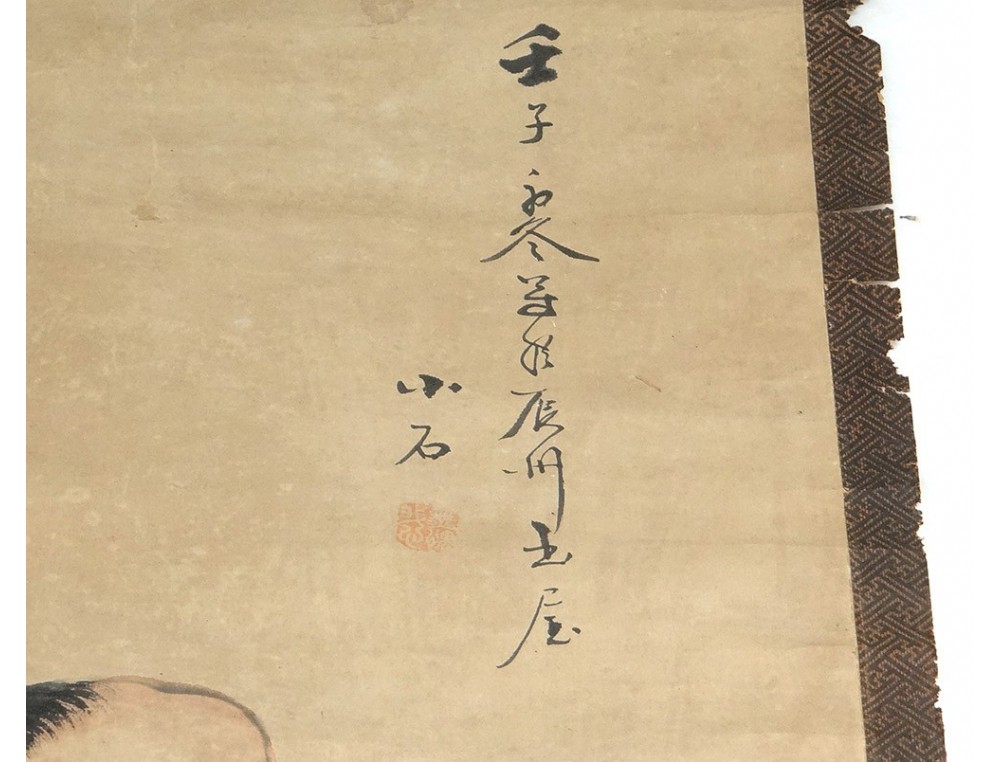 壬子初冬寫於辰州玉屋
小石